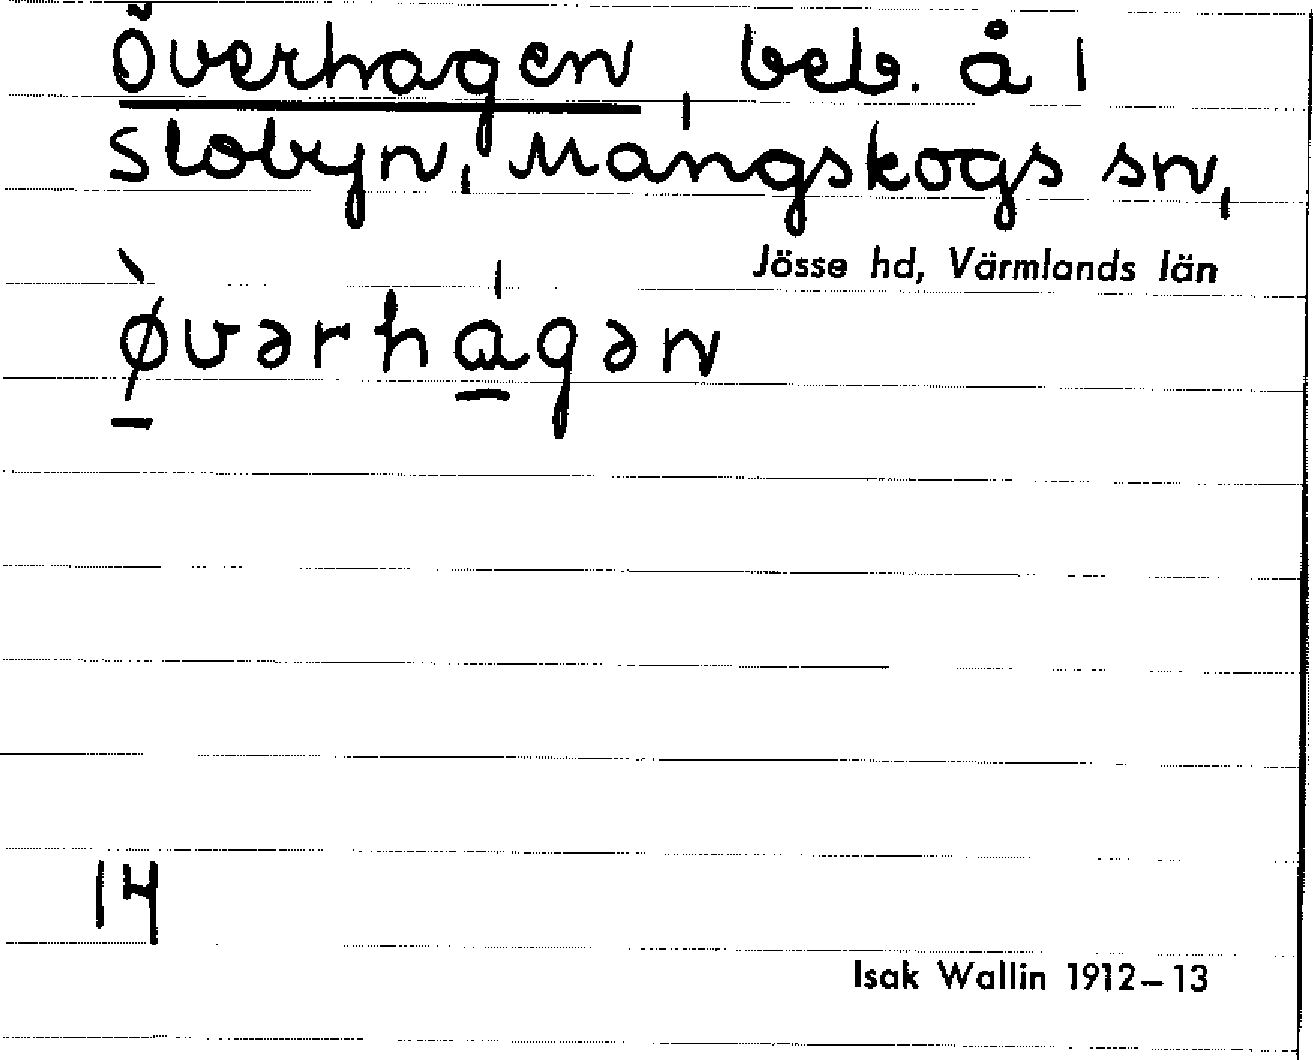 Överhagen, beb. å 1
Slobyn, Mangskogs sn,
Jösse hd, Värmlands län
ø̀vərhágən
14
Isak Wallin 1912–13